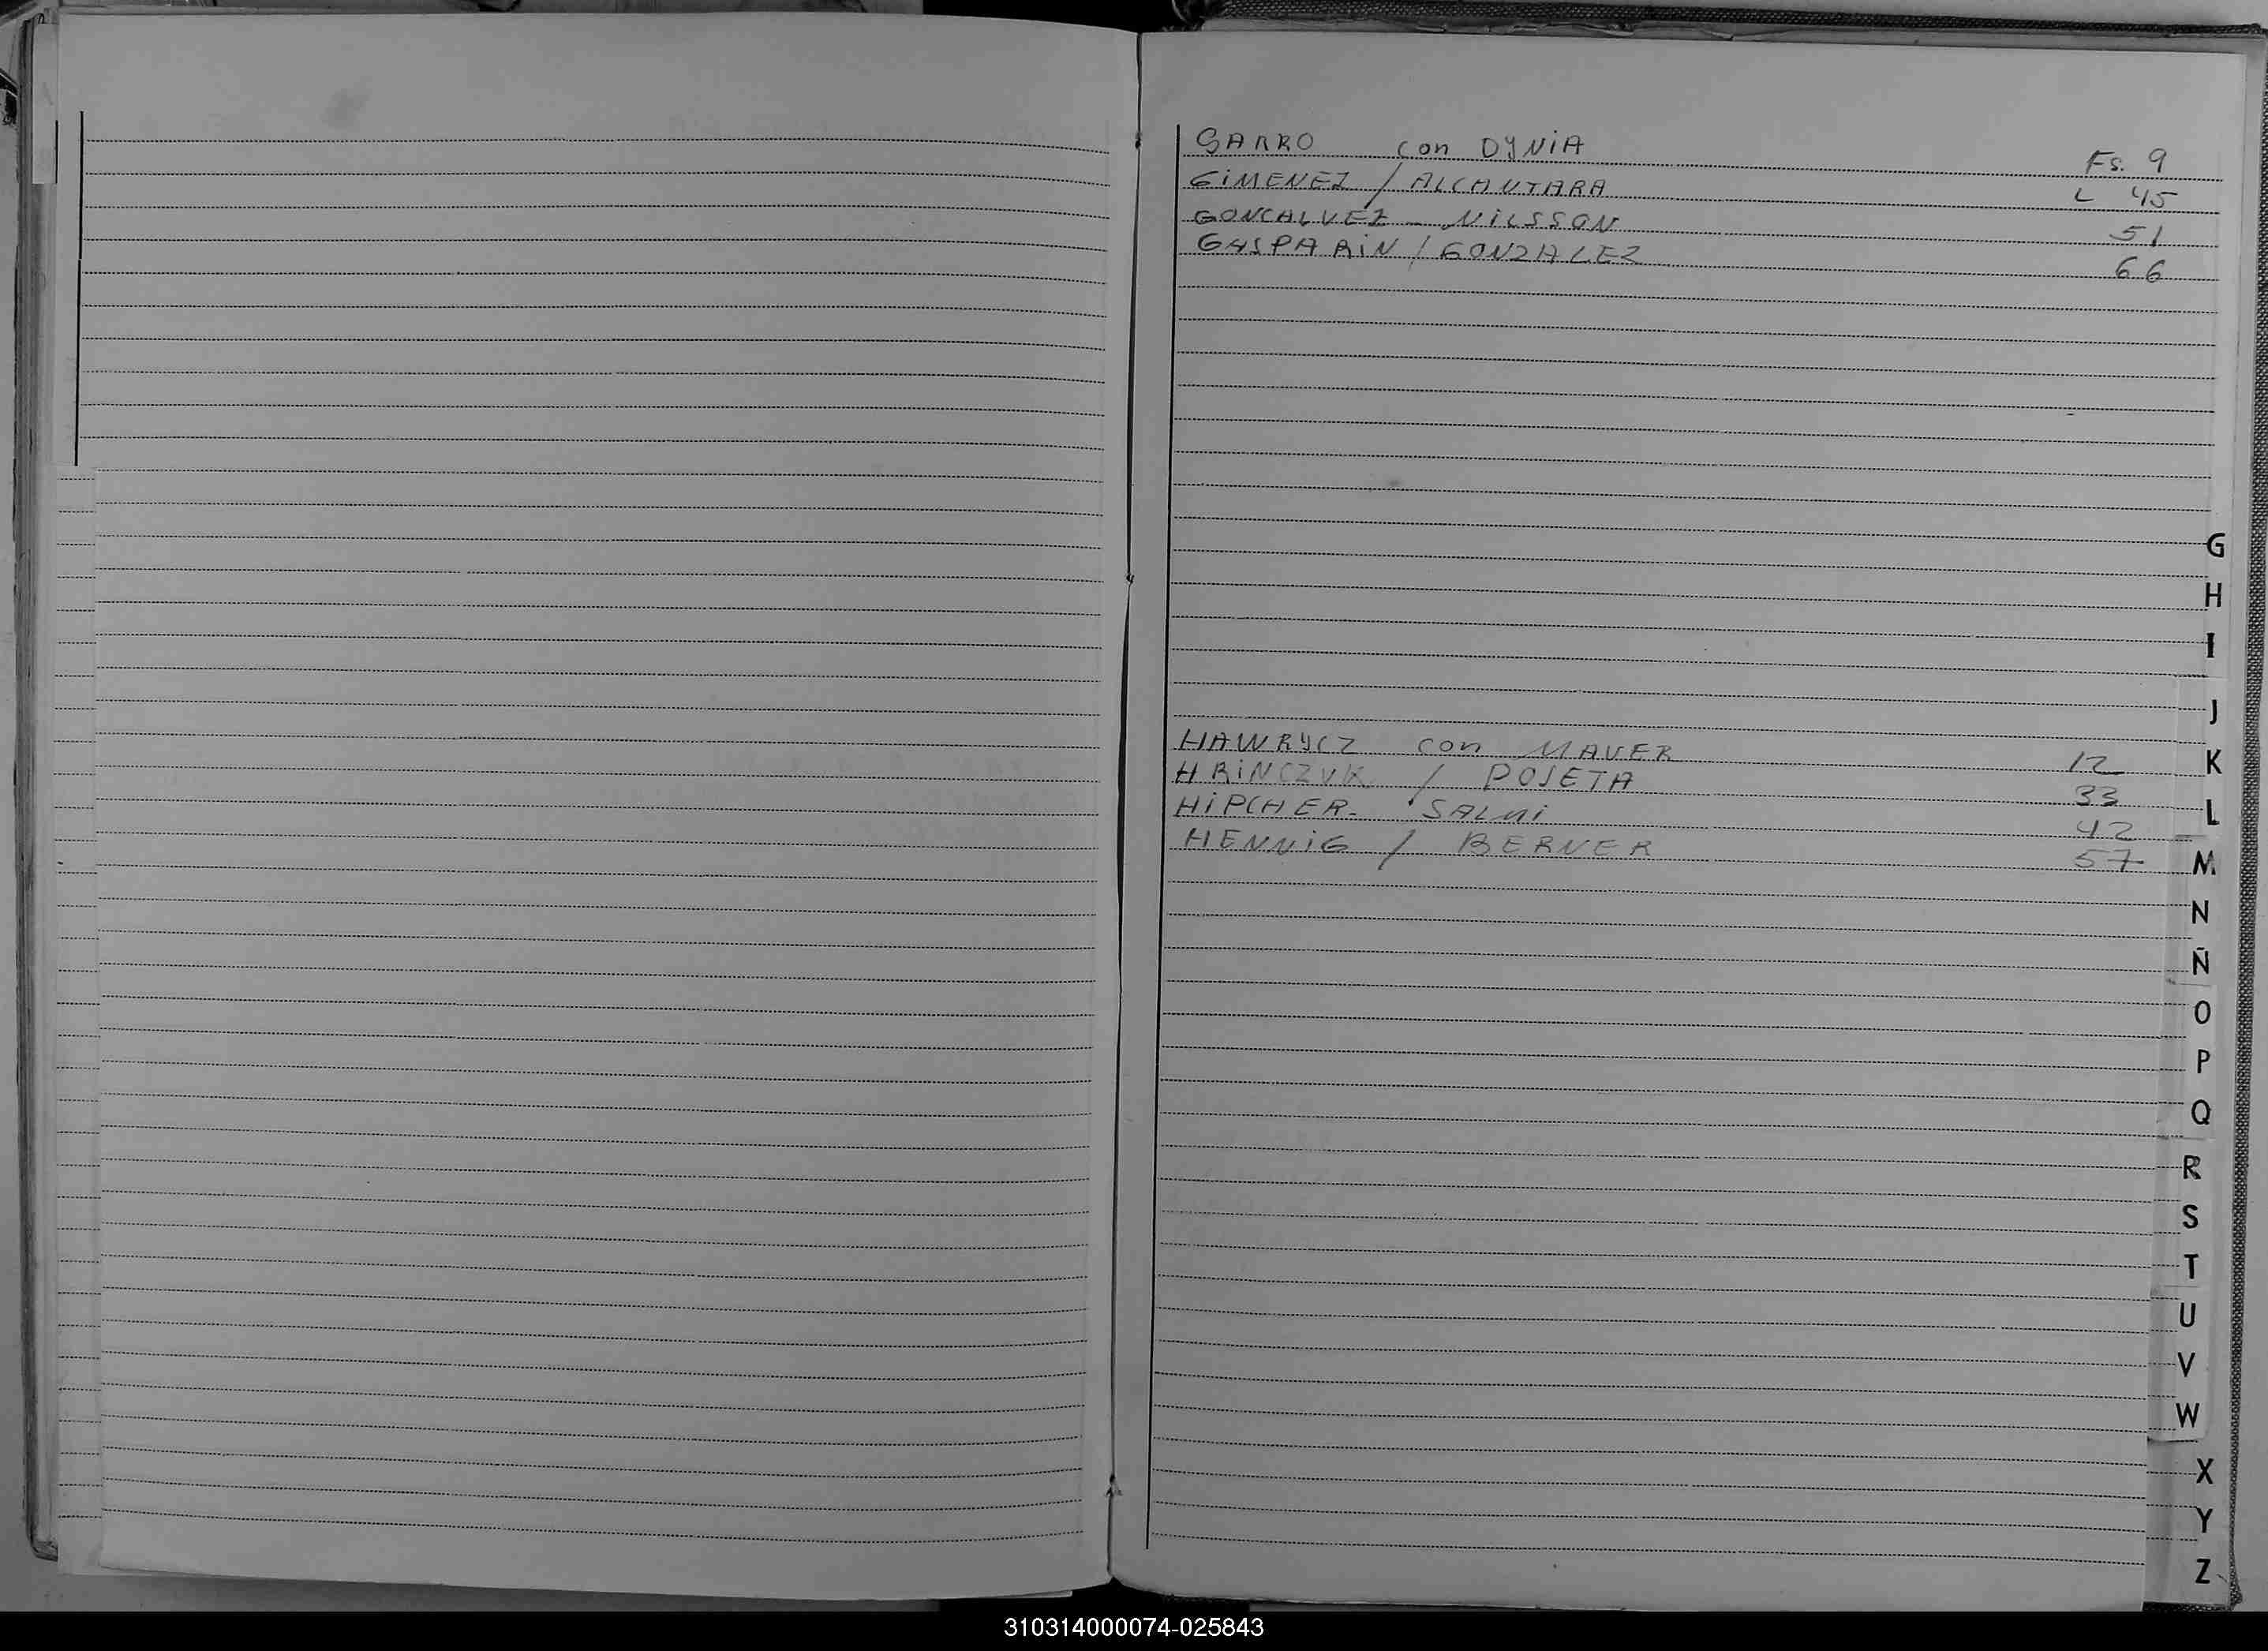 GARRO con DYNIA Fs. 9
GIMENEZ / ALCANTARA L 45
GONCALVEZ - NILSSON 51
GASPARIN / GONZALEZ 66
G
H
I
J
HAWRYCZ con MAUER 12
K
HRINCZUK / POSETA 33
HIPCHER - SALMI 42
L
HENNIG / BERNER 57
M
N
Ñ
O
P
Q
R
S
T
U
V
W
X
Y
Z
310314000074-025843